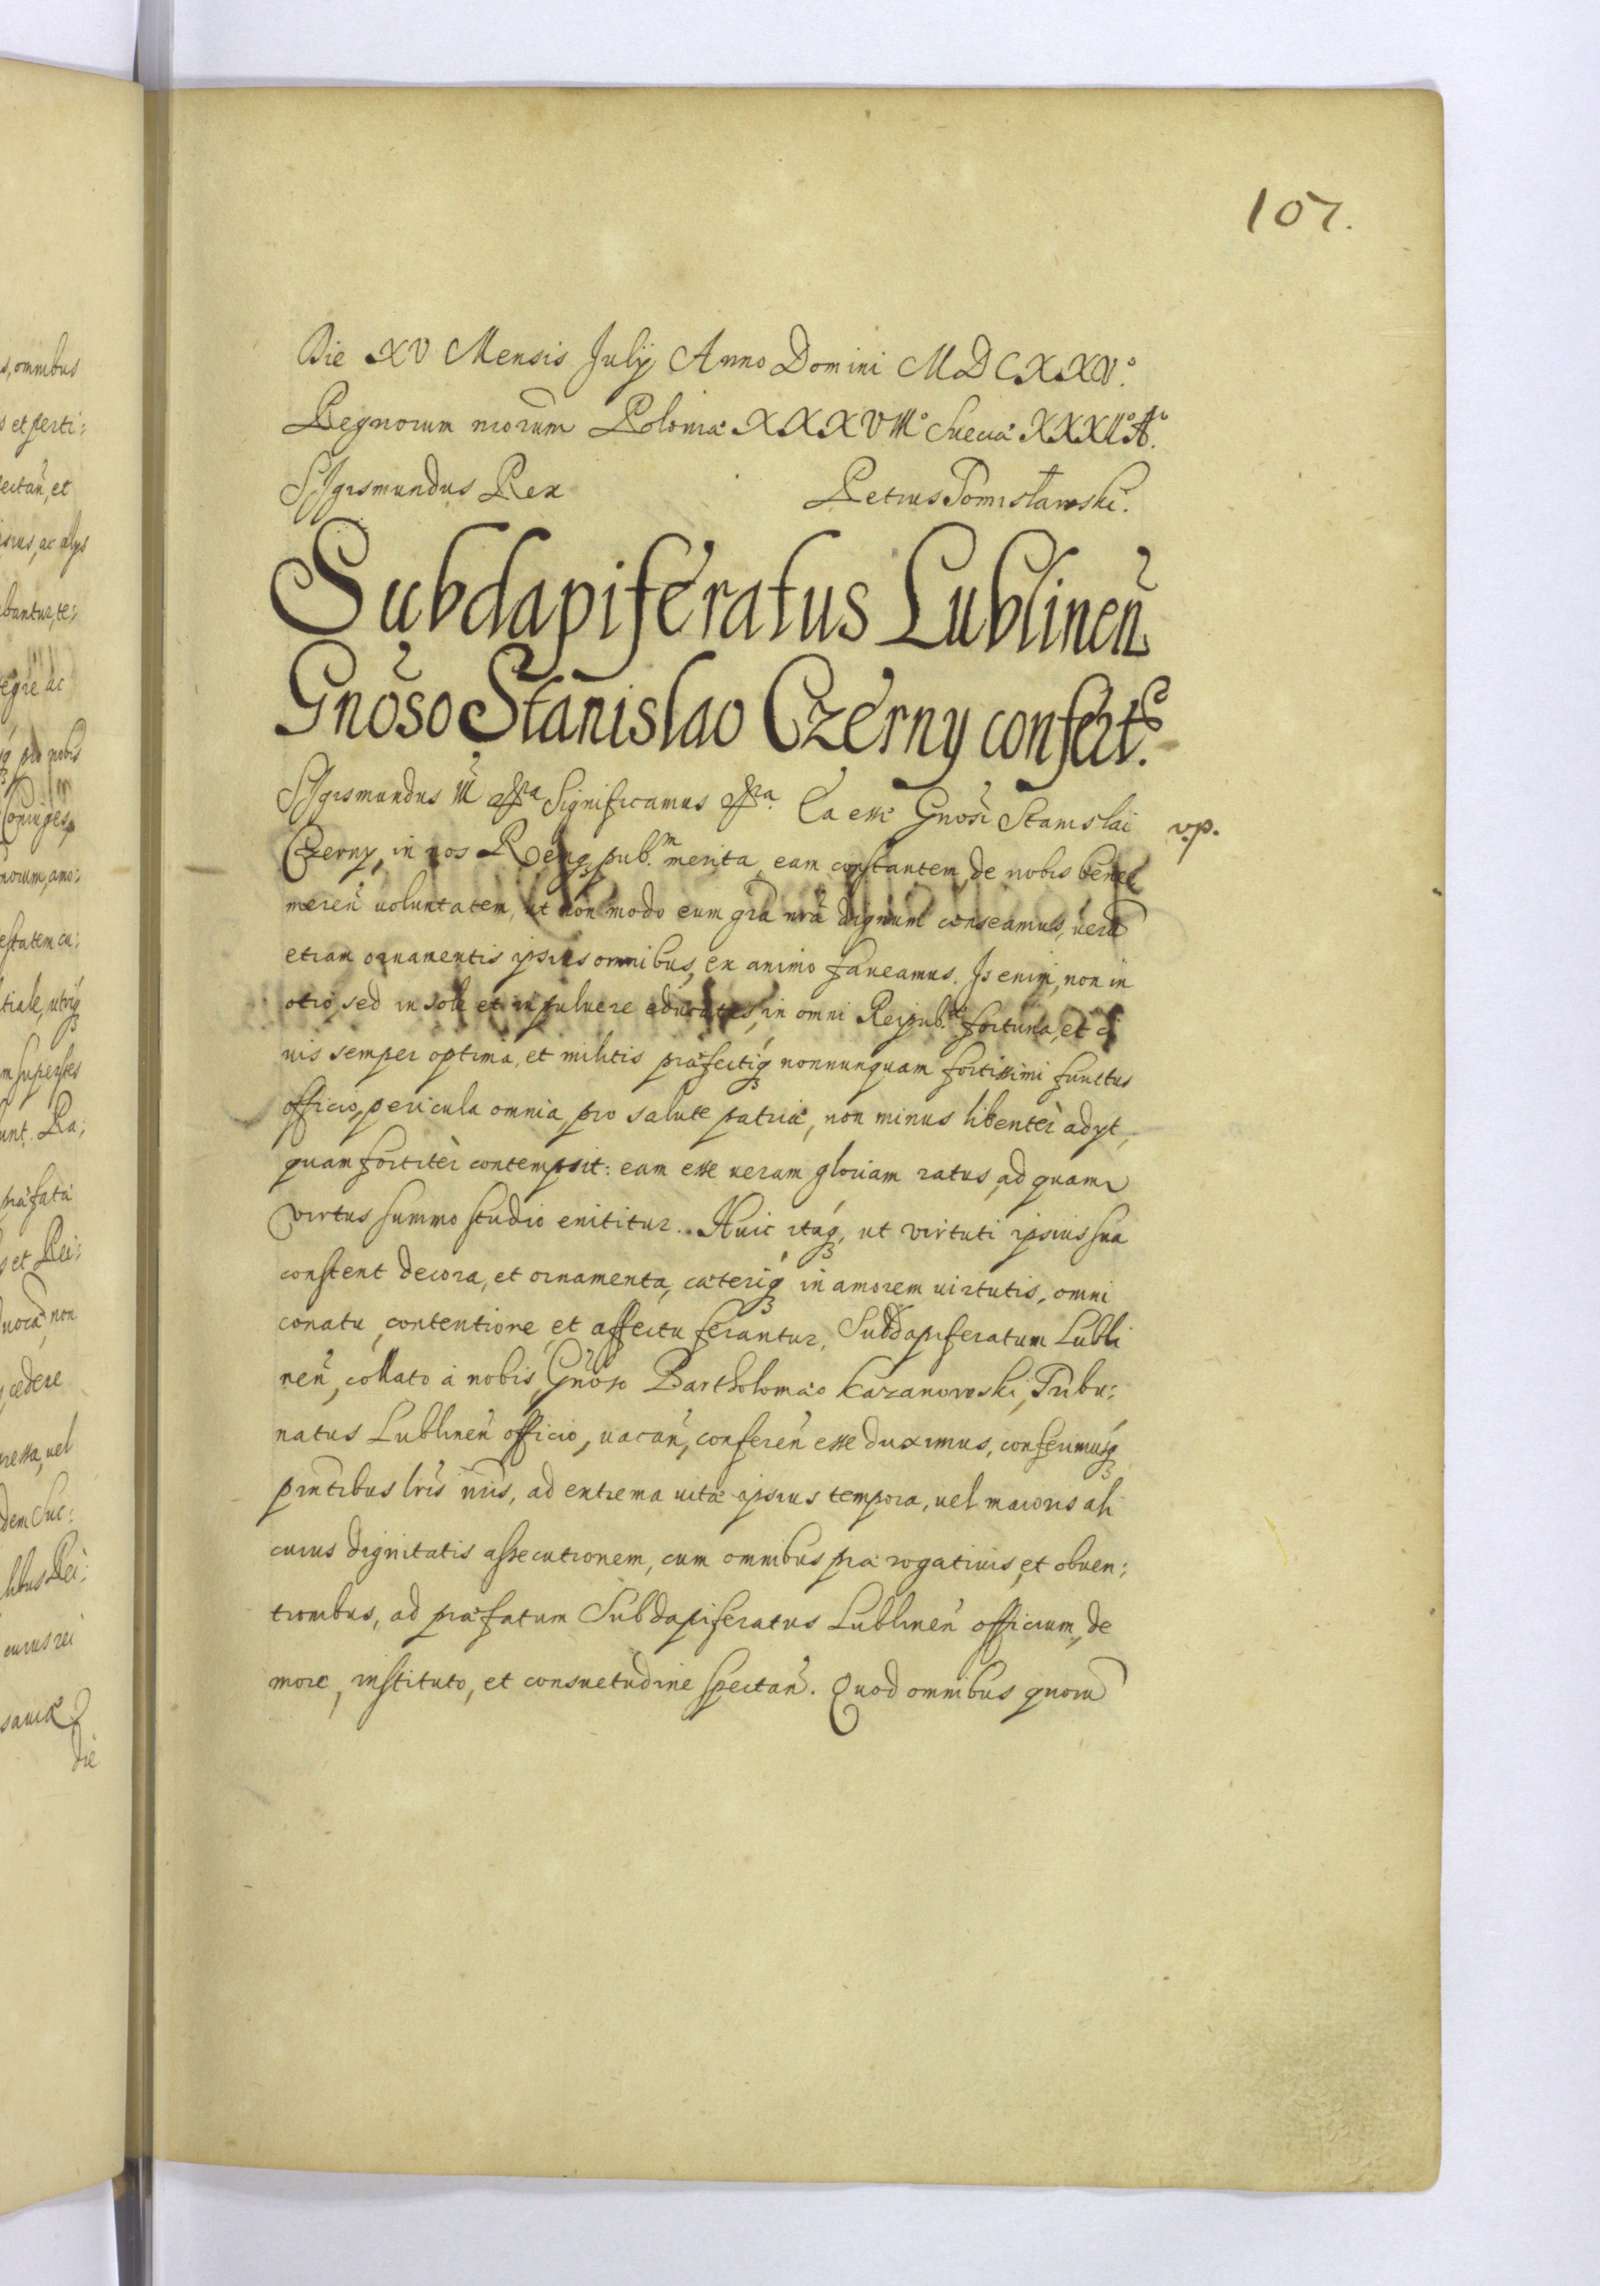 107.
Die XV Mensis July Anno Domini MDCXXV.°
Regnorum nrorum Poloniæ XXXVIII° Sueciæ XXXII A°.
Sigismundus Rex Petrus Tomisławski.
Subdapiferatus Lublinen̄
Gnōso Stanislao Czerny confertr.
Sigismundus III etc̃a Significamus etc̃a. Ea esse Gnōsi Stanislai
v.p.
Czerny, in nos Remq, pub.m merita, eam constantem, de nobis bene
meren̄ voluntatem, ut non modo eum grā nrā dignum censeamus, verū
etiam ornamentis ipsius omnibus, ex animo faveamus. Is enim, non in
otio, sed in sole et in pulvere educatus, in omni Reipub.cæ fortuna, et ci
vis semper optimi, et militis præfectiq nonnunquam fortissimi functus
officio, pericula omnia pro salute patriæ, non minus libentèr adyt,
quam fortitèr contempsit: eam esse veram gloriam ratus, ad quam
virtus summo studio enititur. Huic itaq, ut virtuti ipsius sua
constent decora, et ornamenta, cæteriq in amorem virtutis, omni
conatu, contentione, et affectu ferantur, Subdapiferatum Lubli
nen̄, collato à nobis, Gnōso Bartholomæo Kazanowski, Tribu:
natus Lublinen̄ officio, vacan̄, conferen̄ esse duximus, conferimusq
pntibus lris nris, ad extrema vitæ ipsius tempora, vel maioris ali
cuius dignitatis assecutionem, cum omnibus prærogativis, et obven:
tionibus, ad præfatum Subdapiferatus Lublinen̄ officium, de
more, instituto, et consuetudine spectan̄. Quod omnibus quorū